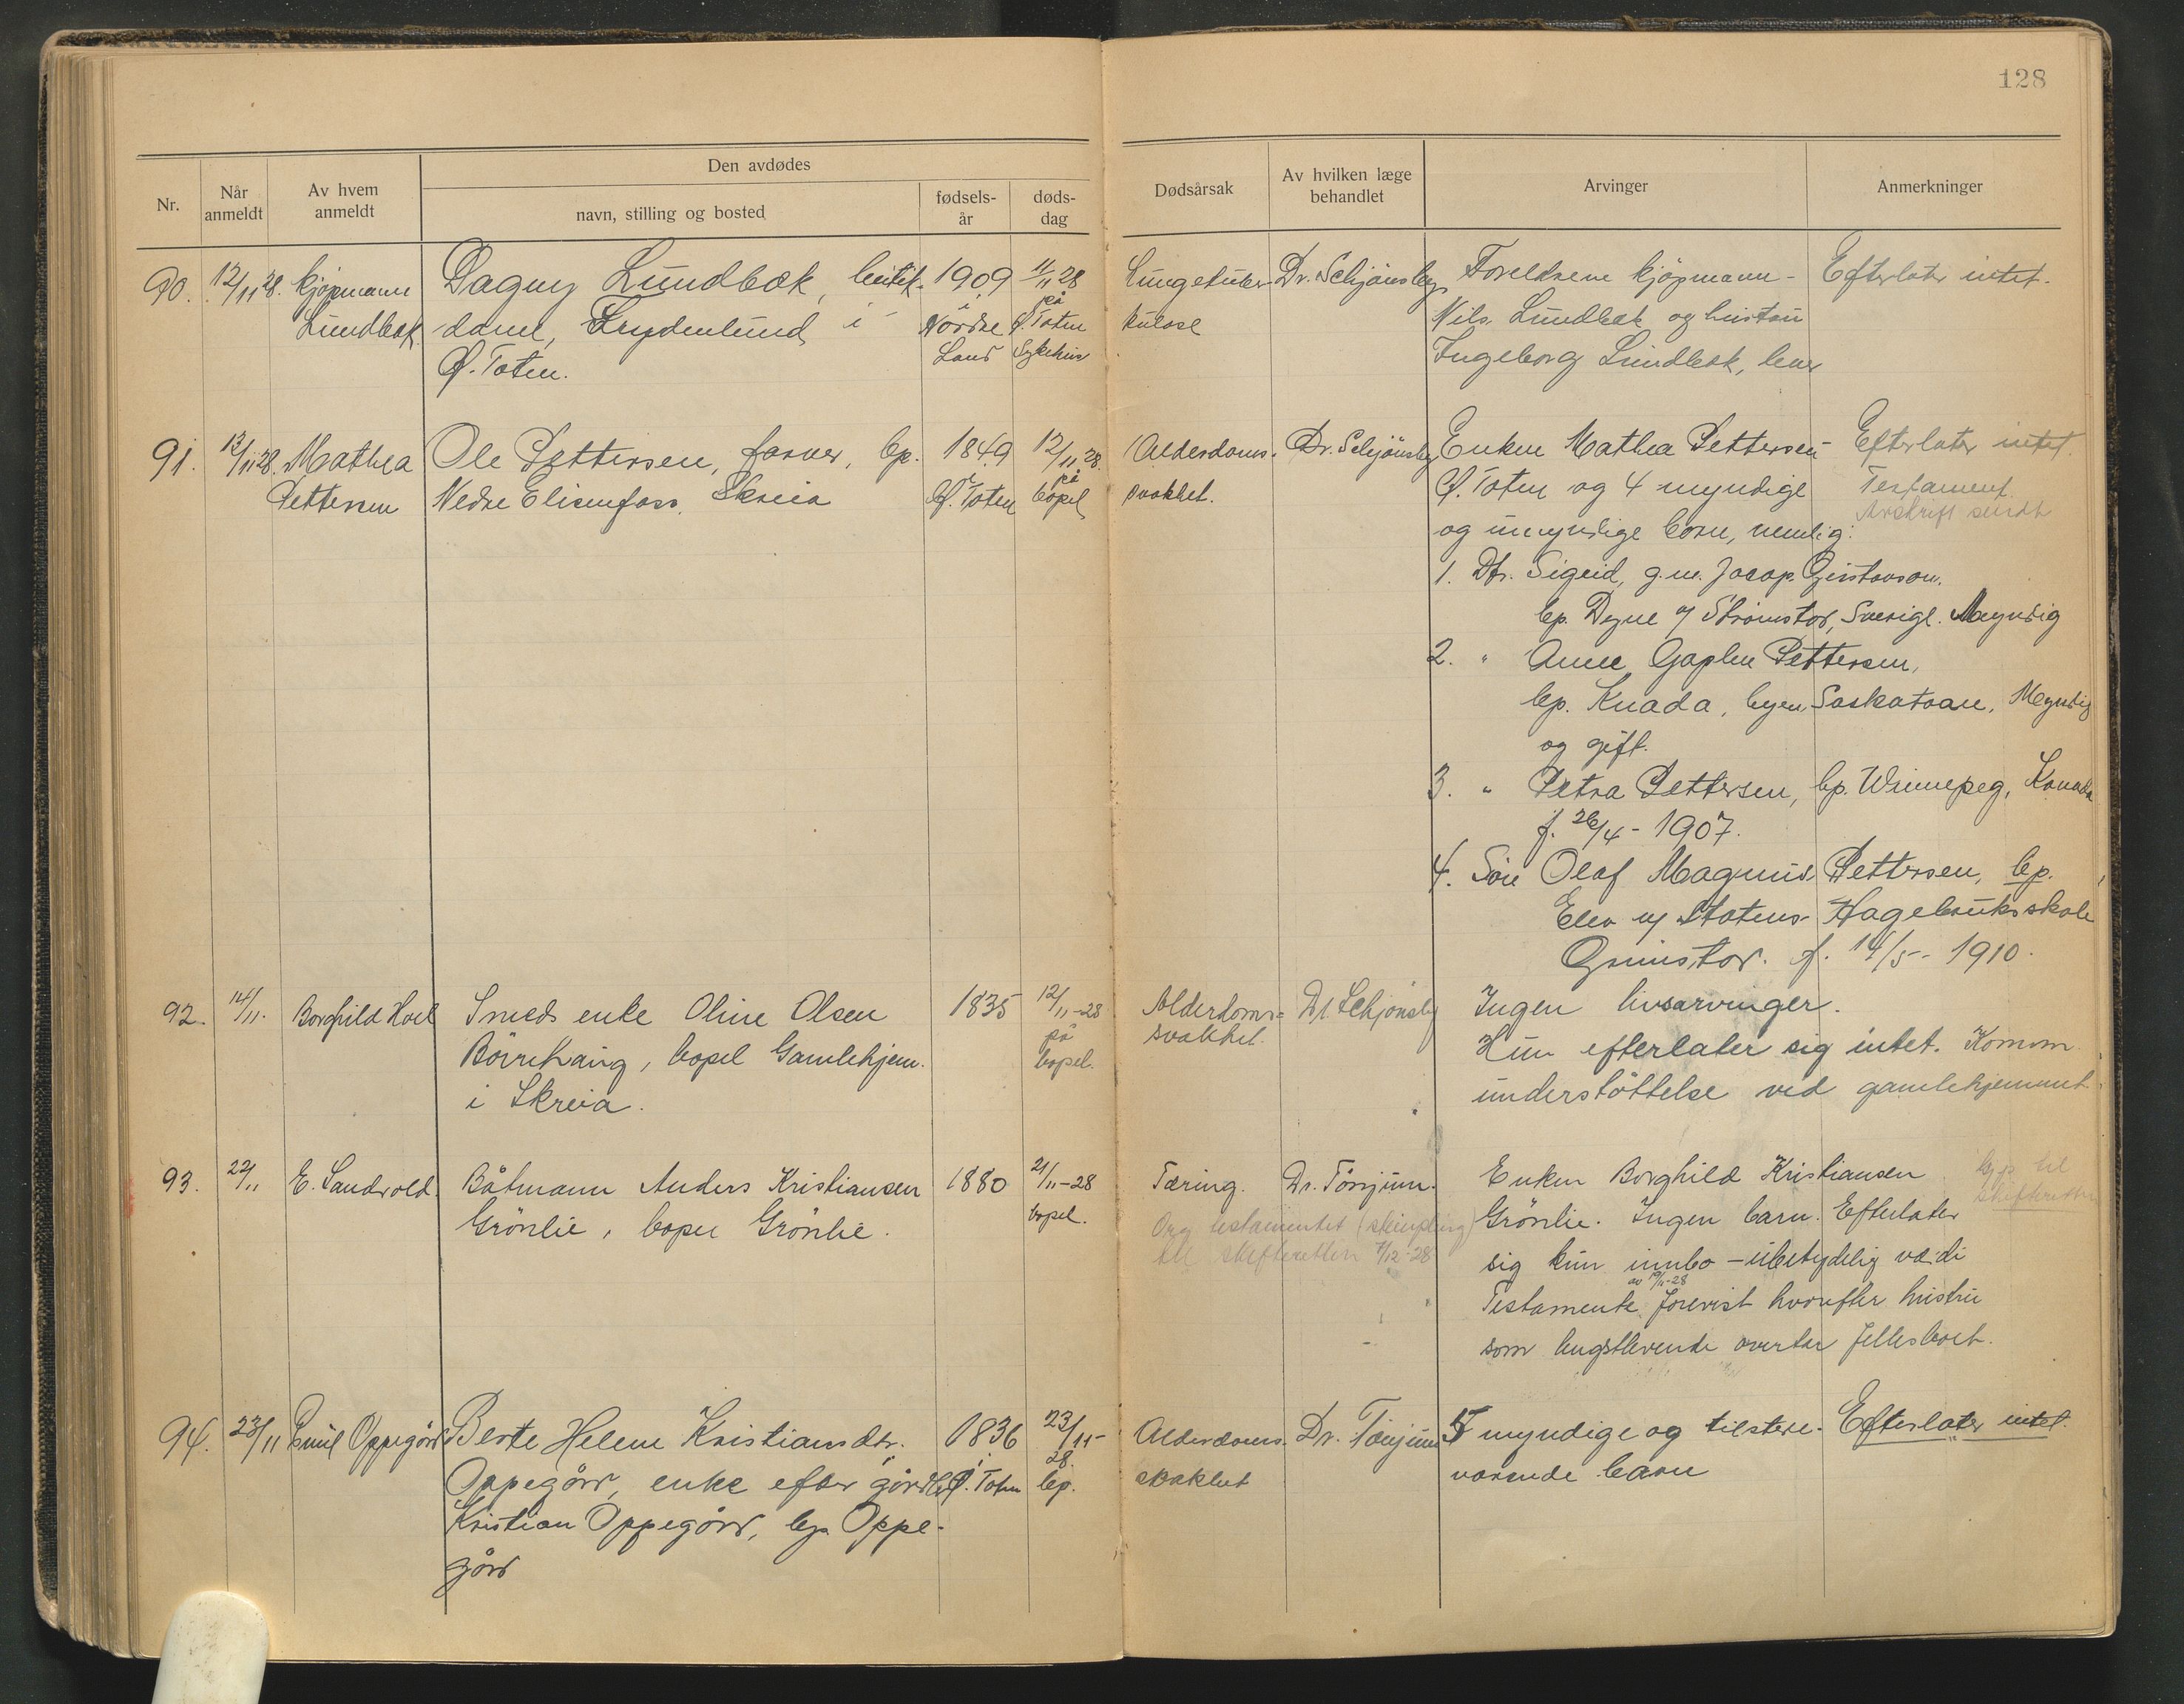 128
Den avdødes
Nr.
Når anmeldt
Av hvem anmeldt
navn, stilling og bosted
fødsels-år
døds-dag
Dødsårsak
Av hvilken læge behandlet
Arvinger
Anmerkninger
90. 12/11 28. kjøpmann Lundbæk.
Dagny Lundbæk, butik-
dame, Frydenlund i
Ø. Toten.
1909 i Nordre Land
11/11 28 på Ø. Toten Sykehus
Lungetuber-
kulose
Dr. Schjønsby
Foreldrene kjøpmann
Nils Lundbæk og hustru
Ingeborg Lundbæk, lever
Efterlater intet.
91. 13/11 28. Mathea Pettersen
Ole Pettersen, farver, bp.
Nedre Elisenfoss, Skreia
1849 i Ø. Toten
12/11 28. på bopel
Alderdoms-
svakhet.
Dr. Schjønsby
Enken Mathea Pettersen
Ø. Toten og 4 myndige
og umyndige born, nemlig:
1. Dtr. Sigrid, g.m. Jacop Gustavson.
bp. Dyne v/ Strømstad, Sverige. Myndig
2. " Anne Gaplen Pettersen,
bp. Knada, byen Saskatoan, Myndig
og gift.
3. " Petra Pettersen, bp. Winnepeg, Kanada
f. 26/4 - 1907.
4. Søn Olaf Magnus Pettersen, bp.
Elev v/ Statens Hagebruksskole
Grimstad. f. 14/5 - 1910.
Efterlater intet.
Testament.
Avskrift sendt
92. 14/11. Borghild Hoel
Smeds enke Oline Olsen
Börrehaug, bopel Gamlehjem.
i Skreia.
1835
12/11-28 på bopel.
Alderdoms=
svakhet.
Dr Schjønsby
Ingen livsarvinger.
Hun efterlater sig intet. Komm.
understöttelse ved gamlehjemmet.
93. 22/11 E. Sandvold.
Båtmann Anders Kristiansen
Grönlie, bopel Grönlie.
1880
21/11-28 bopel.
Tæring.
Dr. Tönjum.
Org testamentet
til skifteretten 7/12-28
Enken Borghild Kristiansen
Grönlie. Ingen barn. Efterlater
sig kun innbo - ubetydelig verdi
av 19/11-28
Testamente forevist hvorefter hustru
som lengstlevende overtar fellesboet.
til
skifteretten
94. 23/11 Emil Oppegård
Berte Helene Kristiansdtr.
Oppegård, enke efter gårdbr.
Kristian Oppegård, bp. Oppe-
gård
1836 i Ø. Toten
23/11-28. bp.
Alderdoms-
svakhet
Dr. Tönjum
5 myndige og tilstede-
værende barn
Efterlater intet.